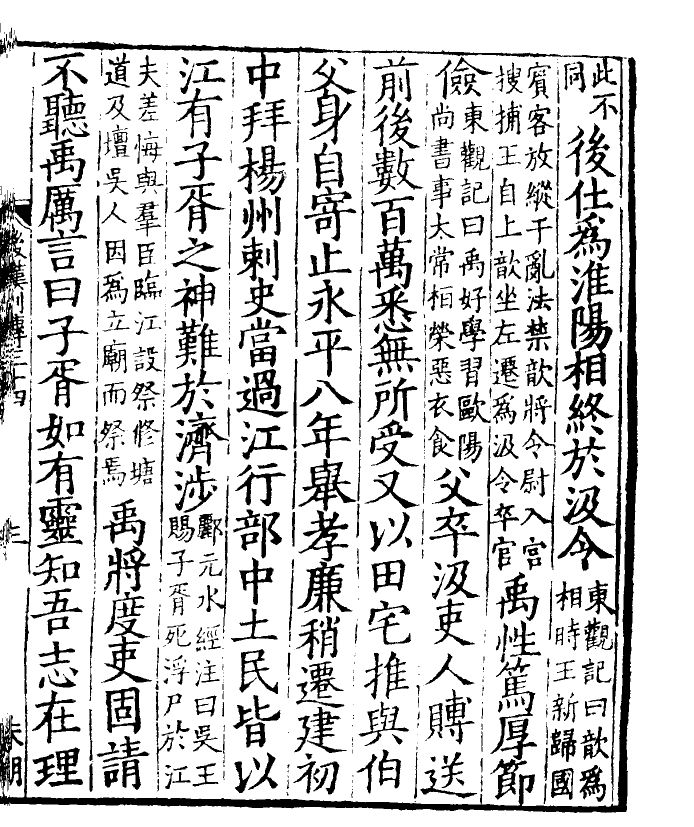 此不同後仕爲淮陽相終於汲令東觀記曰歆爲相時王新歸國
賓客放縱干亂法禁歆將令尉入宮搜捕王自上歆坐左遷爲汲令卒官禹性篤厚節
儉東觀記曰禹好學習歐陽尚書事太常桓榮惡衣食父卒汲吏人賻送
前後數百萬悉無所受又以田宅推與伯
父身自寄止永平八年舉孝廉稍遷建初
中拜楊州刺史當過江行部中土民皆以
江有子胥之神難於濟涉酈元水經注曰吳王賜子胥死浮尸於江
夫差悔與羣臣臨江設祭修塘道及壇吳人因爲立廟而祭焉禹將度吏固請
不聽禹厲言曰子胥如有靈知吾志在理
後漢列傳三十四